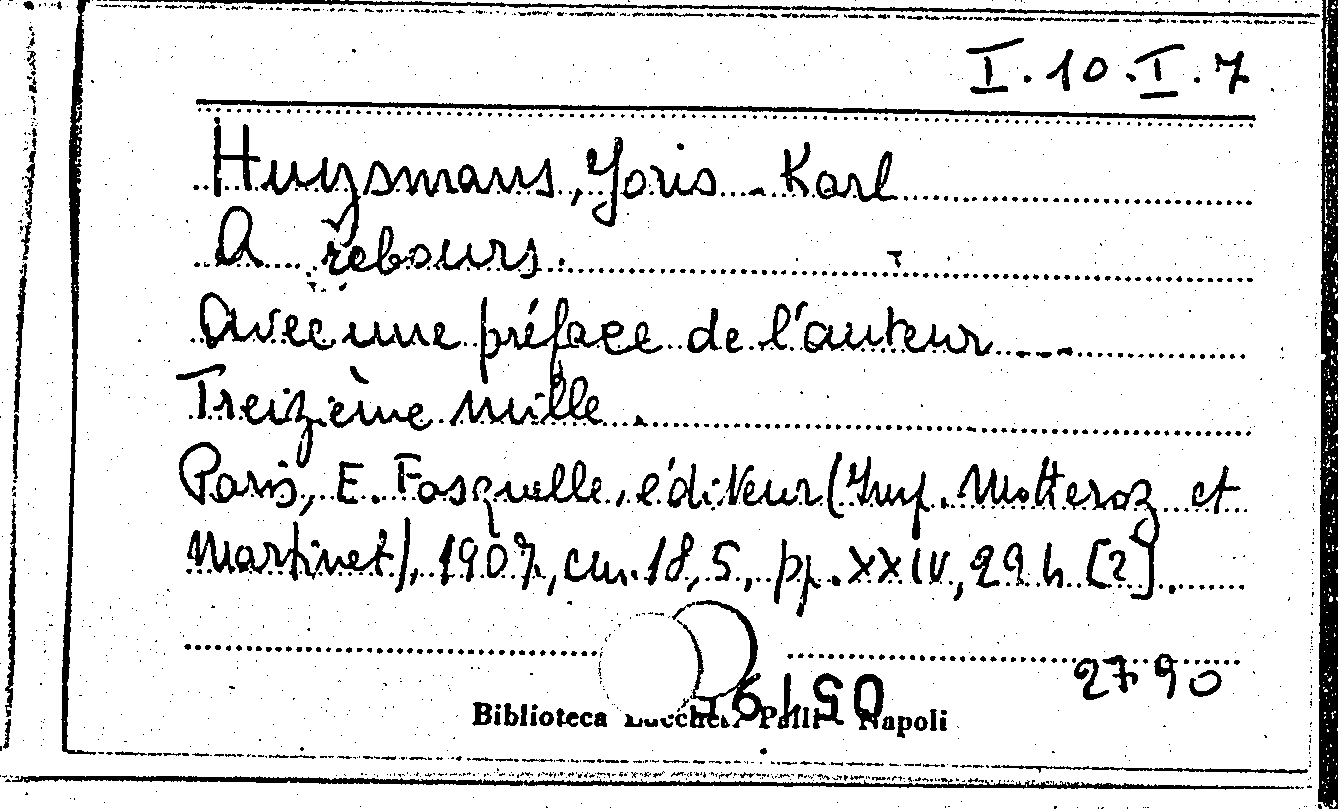 I.10.I.7
Huysmans, Joris-Karl
A rebours.
Avec une préface de l'auteur ...
Treizième mille.
Paris, E. Fasquelle, éditeur (Imp. Motteroz et
Martinet), 1907, cm. 18,5, pp. XXIV, 294 [2].
2790
Biblioteca Lucchesi Palli Napoli